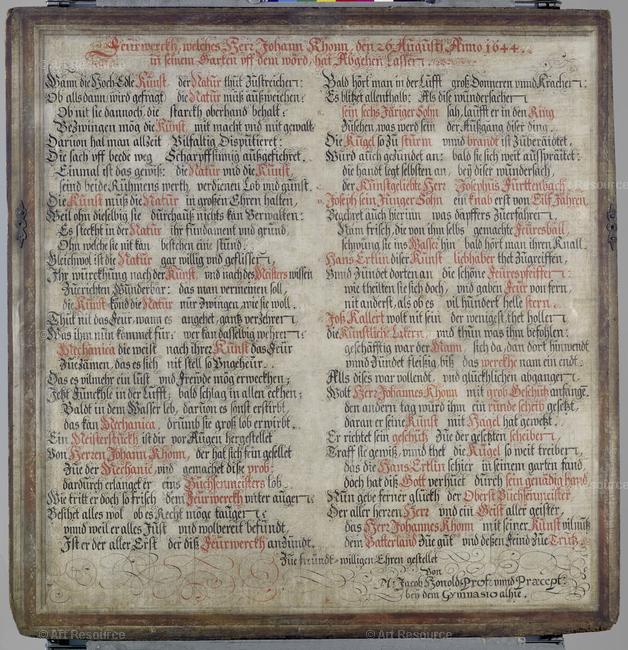 Feürwerckh, welches Herr Johann Khonn, den 26 Augusti, Anno 1644.
in seinem Garten vff dem wörd, hat Abgehen Lassen.
Wann die Hoch Edle Kunst der Natur thuit Züstreichen:
Ob alls dann wird gefragt die Natur müß außweichen:
Ob nit sie dannoch, die starckh oberhand behalt:
Bezwingen mög die Kunst mit macht vnd mit gewalt.
Daruon hat man allzeit Vilfaltig Disputieret:
Die sach vff beede weg Scharpffsinnig außgefichret.
Einmal ist das gewiß: die Natur vnd die Kunst,
seind beide Rühmens werth verdienen Lob vnd gunst.
Die Kunst müß die Natur in großen Ehren halten,
Weil ohn dieselbig sie durchauß nichts kan Verwalten:
Es steckht in der Natur ihr fundament vnd gründ,
Ohn welche sie nit kan bestehen eine stünd.
Gleichwol ist die Natur gar willig vnd geflissen,
Ihr würckhüng nach der Kunst, vnd nach des Meisters wissen
Zuerichten Wünderbar: das man vermeinen soll,
die Kunst könd die Natur nur Zwingen, wie sie woll.
Thüt nil das Feür, wann es angehet, gantz verzehren
Was ihm nun kommet für: wer kan dasselbig wehren
Mechanica die weist nach ihrer Kunst das Feür
Zue Zämen, das es sich nit stell so Vngeheür.
Das es vilmehr ein lüst vnd Freüde mög erweckhen:
Jetzt Fünckhle in der Lüfft, bald schlag in allen eckhen:
Baldt in dem Wasser leb, daruon es sonst erstirbt,
das kan Mechanica, drümb sie groß lob erwirbt.
Ein Meisterstückh ist dir vor Augen hergestellet
Von Herren Johann Khonn, der hat sich fein gesellet
Züe der Mechanic vnd gemachet dise prob:
dardurch erlanget er eins Büchsenmeisters lob.
Wie tritt er doch so frisch dem Feürwerckh vnter augen,
Besihet alles wol ob es Recht möge taugen
vnnd weil er alles Just vnd wolbereit befündt,
Ist er der aller Erst der diß Feürwerckh anzündt.
Bald hört man in der Lüfft groß Donneren vnnd Krachen:
Es blitzet allenthalb: Als dise wündersachen
sein sechs Järiger Sohn sah, laufft er in den Ring
Züsehen, was werd sein der Außgang diser ding.
Die Kugel so Zü stürm vnnd brandt ist Züberäidtet,
Würd auch gezündet an: bald sie sich weit außbräitet:
die handt legt selbsten an, bey diser wündersach,
der Kunstgeliebte Herr Josephus Fürttenbach,
Joseph sein Junger Sohn ein knab erst von Eilf Jahren,
Begehret auch hierinn was dapffers Zuerfahren:
Nam frisch, die von ihm selbs gemacht Feüresbäll,
schwüng sie ins Wasser hin bald hört man ihren Knall.
Hans Ertlin diser Kunst liebhaber thet Zugreiffen,
Vnnd Zündet dorten an die schöne Feürespfeiffen:
wie theilten sie sich doch, vnd gaben Feür von fern,
nit anderst, als ob es vil hündert helle stern.
Joß Kallert wolt nit sein der wenigest, thet hollen
die Künstliche Latern, vnd thün was ihm befohlen:
geschäfftig war der Mann, sich da, dan dort hinwendt
vnnd Zündet fleißig, biß das werckhe nam ein endt.
Alls dises war vollendt, vnd glücklichen abgangen
Wolt Herr Johannes Khonn mit grob Geschütz anfangen,
den andern tag würd ihm ein ründe scheib gesetzt,
daran er seine Kunst mit Hagel hat gewetzt.
Er richtet sein geschütz Züe der gesetzten scheiben
Traff sie gewiß, vnnd thet die Kugel so weit treiben,
das die Hans Ertlin schier in seinem garten fand,
doch hat diß Gott verhüet durch sein genädig hand.
Nun gebe ferner glückh der Oberst Büchsenmeister,
Der aller herren Herr vnd ein Geist aller geister,
das Herr Johannes Khonn mit seiner Kunst vil nutz
dem Vatterland Züe güt vnd deßen Feind Züe Trütz.
Züe freündt-willigen Ehren gestellet
Von
M: Jacob Honold Prof: vnnd Præcept:
bey dem Gymnasio alhie.
© Art Resource
© Art Resource
© Art Resource
© Art Resource